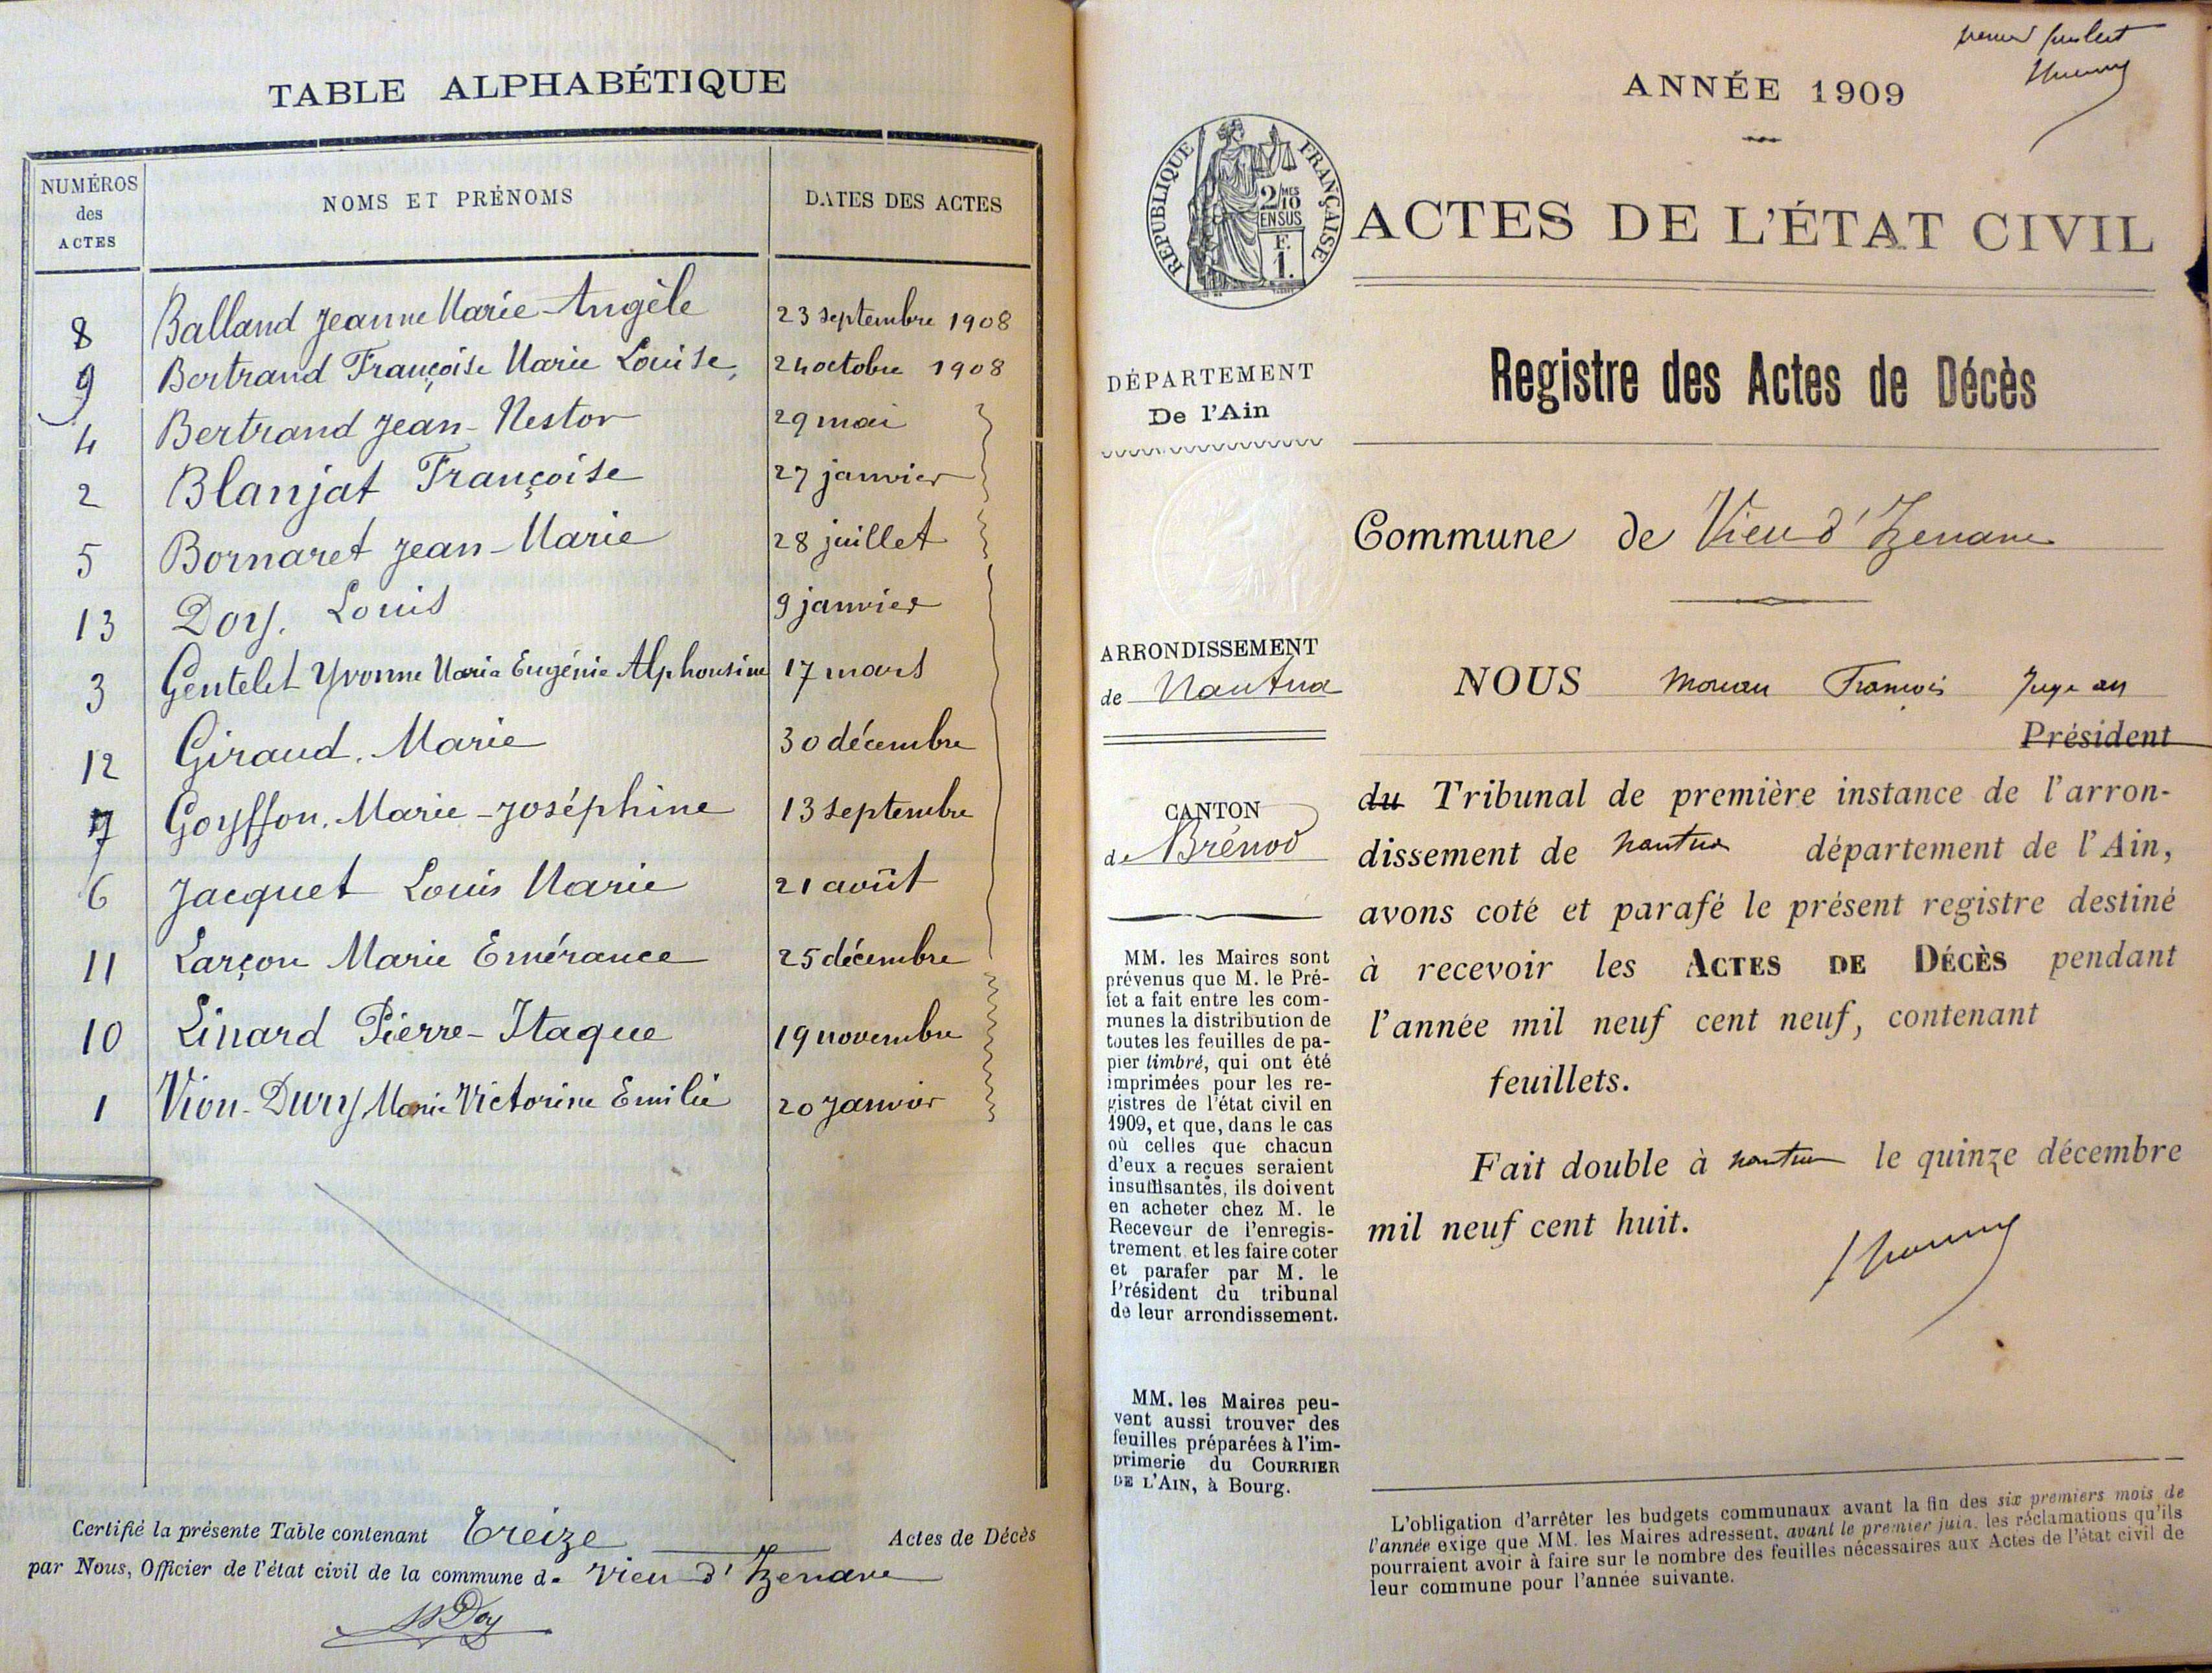 TABLE ALPHABÉTIQUE
NUMÉROS
des
ACTES
NOMS ET PRÉNOMS
DATES DES ACTES
8 Balland Jeanne Marie-Angèle 23 septembre 1908
9 Bertrand Françoise Marie Louise, 24 octobre 1908
4 Bertrand Jean-Nestor 29 mai
2 Blanjat Françoise 27 janvier
5 Bornaret Jean-Marie 28 juillet
13 Doy. Louis 9 janvier
3 Gentelet Yvonne Marie Eugénie Alphonsine 17 mars
12 Giraud. Marie 30 décembre
7 Goyffon. Marie-Joséphine 13 septembre
6 Jacquet Louis Marie 21 août
11 Larçon Marie Emérance 25 décembre
10 Linard Pierre-Itaque 19 novembre
1 Viou-Dury Marie Victorine Emilie 20 Janvier
Certifié la présente Table contenant Treize Actes de Décès
par Nous, Officier de l'état civil de la commune de Vieu d'Izenave
Doy
premier feuillet
ANNÉE 1909
RÉPUBLIQUE FRANÇAISE
2/10 MES
EN SUS
F.
1.
ACTES DE L'ÉTAT CIVIL
Registre des Actes de Décès
DÉPARTEMENT
De l'Ain
Commune de Vieu d'Izenave
ARRONDISSEMENT
de Nantua
CANTON
de Brénod
MM. les Maires sont
prévenus que M. le Pré-
fet a fait entre les com-
munes la distribution de
toutes les feuilles de pa-
pier timbré, qui ont été
imprimées pour les re-
gistres de l'état civil en
1909, et que, dans le cas
où celles que chacun
d'eux a reçues seraient
insuffisantes, ils doivent
en acheter chez M. le
Receveur de l'enregis-
trement et les faire coter
et parafer par M. le
Président du tribunal
de leur arrondissement.
MM. les Maires peu-
vent aussi trouver des
feuilles préparées à l'im-
primerie du COURRIER
DE L'AIN, à Bourg.
NOUS François Juge au
Président
du Tribunal de première instance de l'arron-
dissement de Nantua département de l'Ain,
avons coté et parafé le présent registre destiné
à recevoir les ACTES DE DÉCÈS pendant
l'année mil neuf cent neuf, contenant
feuillets.
Fait double à Nantua le quinze décembre
mil neuf cent huit.
L'obligation d'arrêter les budgets communaux avant la fin des six premiers mois de
l'année exige que MM. les Maires adressent, avant le premier juin, les réclamations qu'ils
pourraient avoir à faire sur le nombre des feuilles nécessaires aux Actes de l'état civil de
leur commune pour l'année suivante.